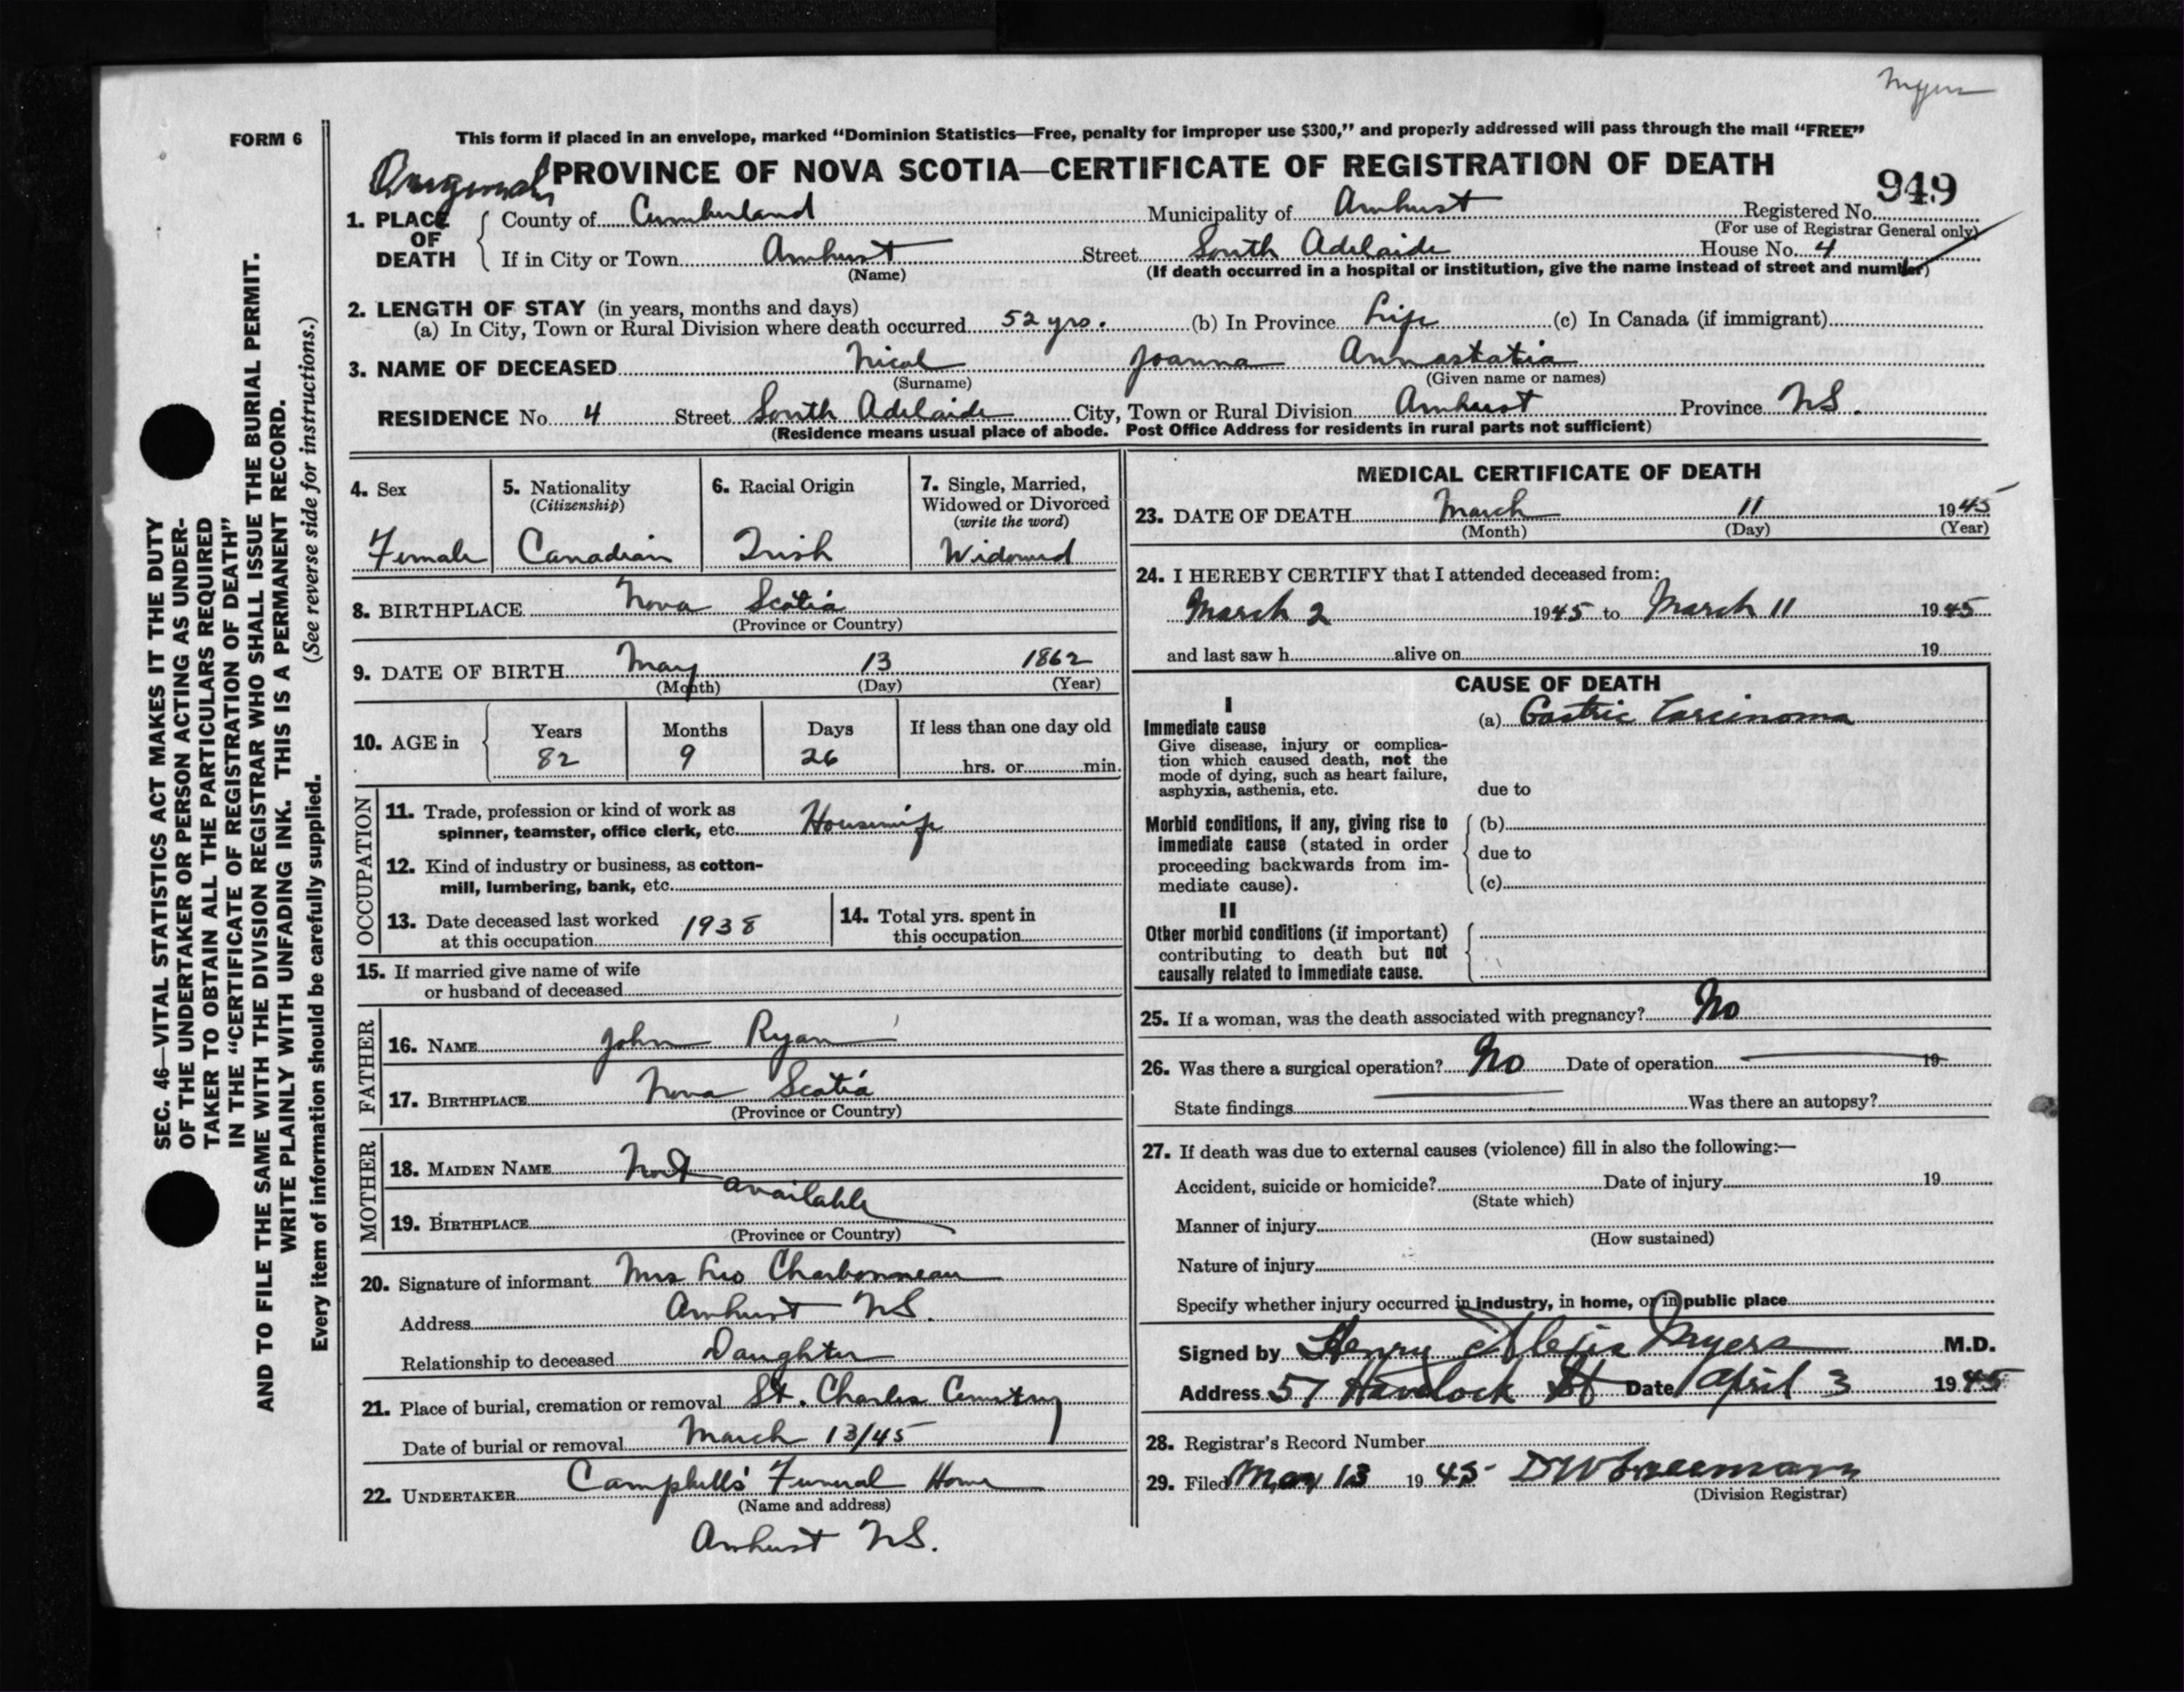 Myers
FORM 6
This form if placed in an envelope, marked "Dominion Statistics—Free, penalty for improper use $300," and properly addressed will pass through the mail "FREE"
Original PROVINCE OF NOVA SCOTIA—CERTIFICATE OF REGISTRATION OF DEATH
949
1. PLACE OF DEATH County of Cumberland Municipality of Amherst Registered No.
(For use of Registrar General only)
If in City or Town Amherst Street South Adelaide House No. 4
(Name) (If death occurred in a hospital or institution, give the name instead of street and number)
2. LENGTH OF STAY (in years, months and days)
(a) In City, Town or Rural Division where death occurred 52 yrs. (b) In Province Life (c) In Canada (if immigrant)
3. NAME OF DECEASED Nicol Joanna Annastatia
(Surname) (Given name or names)
RESIDENCE No. 4 Street South Adelaide City, Town or Rural Division Amherst Province NS.
(Residence means usual place of abode. Post Office Address for residents in rural parts not sufficient)
4. Sex
Female
5. Nationality
(Citizenship)
Canadian
6. Racial Origin
Irish
7. Single, Married,
Widowed or Divorced
(write the word)
Widowed
8. BIRTHPLACE Nova Scotia
(Province or Country)
9. DATE OF BIRTH May 13 1862
(Month) (Day) (Year)
10. AGE in Years Months Days If less than one day old
82 9 26 hrs. or min.
OCCUPATION
11. Trade, profession or kind of work as
spinner, teamster, office clerk, etc. Housewife
12. Kind of industry or business, as cotton-
mill, lumbering, bank, etc.
13. Date deceased last worked
at this occupation 1938
14. Total yrs. spent in
this occupation
15. If married give name of wife
or husband of deceased
FATHER
16. NAME John Ryan
17. BIRTHPLACE Nova Scotia
(Province or Country)
MOTHER
18. MAIDEN NAME Not
available
19. BIRTHPLACE
(Province or Country)
20. Signature of informant Mrs Leo Charbonneau
Address Amherst NS.
Relationship to deceased Daughter
21. Place of burial, cremation or removal St. Charles Cemetry
Date of burial or removal March 13/45
22. UNDERTAKER Campbells' Funeral Home
(Name and address)
Amherst NS.
MEDICAL CERTIFICATE OF DEATH
23. DATE OF DEATH March 11 1945
(Month) (Day) (Year)
24. I HEREBY CERTIFY that I attended deceased from:
March 2 1945 to March 11 1945
and last saw h alive on 19
CAUSE OF DEATH
I
Immediate cause
Give disease, injury or complica-
tion which caused death, not the
mode of dying, such as heart failure,
asphyxia, asthenia, etc.
(a) Gastric Carcinoma
due to
Morbid conditions, if any, giving rise to
immediate cause (stated in order
proceeding backwards from im-
mediate cause).
(b)
due to
(c)
II
Other morbid conditions (if important)
contributing to death but not
causally related to immediate cause.
25. If a woman, was the death associated with pregnancy? No
26. Was there a surgical operation? No Date of operation 19
State findings Was there an autopsy?
27. If death was due to external causes (violence) fill in also the following:—
Accident, suicide or homicide? Date of injury 19
(State which)
Manner of injury
(How sustained)
Nature of injury
Specify whether injury occurred in industry, in home, or in public place
Signed by Henry Alexis Myers M.D.
Address 57 Havelock St Date April 3 1945
28. Registrar's Record Number
29. Filed May 13 1945 DW Freeman
(Division Registrar)
SEC. 46—VITAL STATISTICS ACT MAKES IT THE DUTY
OF THE UNDERTAKER OR PERSON ACTING AS UNDER-
TAKER TO OBTAIN ALL THE PARTICULARS REQUIRED
IN THE "CERTIFICATE OF REGISTRATION OF DEATH"
AND TO FILE THE SAME WITH THE DIVISION REGISTRAR WHO SHALL ISSUE THE BURIAL PERMIT.
WRITE PLAINLY WITH UNFADING INK. THIS IS A PERMANENT RECORD.
Every item of information should be carefully supplied. (See reverse side for instructions.)